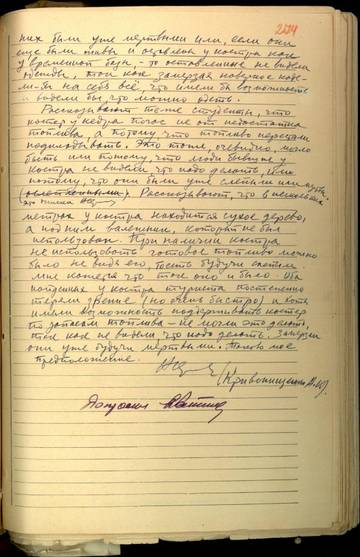 274
них были уже мертвыми или, если они
еще были живы и остались у костра как
у временной базы, - то оставленные не видели
одежды, так как замерзая наверное наде-
ли-бы на себя всё, что имели бы возможность
и видели бы, что можно взять.
Рассказывают тоже студенты, что
костер у кедра погас не от недостатка
топлива, а потому, что топливо перестали
подкладывать. Это тоже, очевидно, могло
быть или потому, что люди бывшие у
костра не видели что надо делать, или
потому, что они были уже слепыми или
Рассказывают, что в нескольких
метрах у костра находится сухое дерево,
а под ним валежник, который не был
использован. При наличии костра
не использовать готовое топливо можно
было не видя его, то есть будучи слепым
мне кажется что так оно и было. На
у костра туриста постепенно
теряли зрение (но очень быстро) и хотя
имели возможность поддерживать костер
по запасам топлива - не могли это делать,
так как не видели что надо делать. Замерзли
они уже будучи мертвыми. Таково мое
предположение.
(Кривонищенко А.К).
Допросил